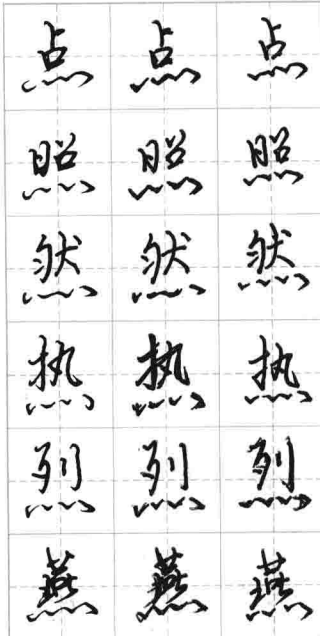 点点点
照照照
然然然
热热热
烈烈烈
燕燕燕